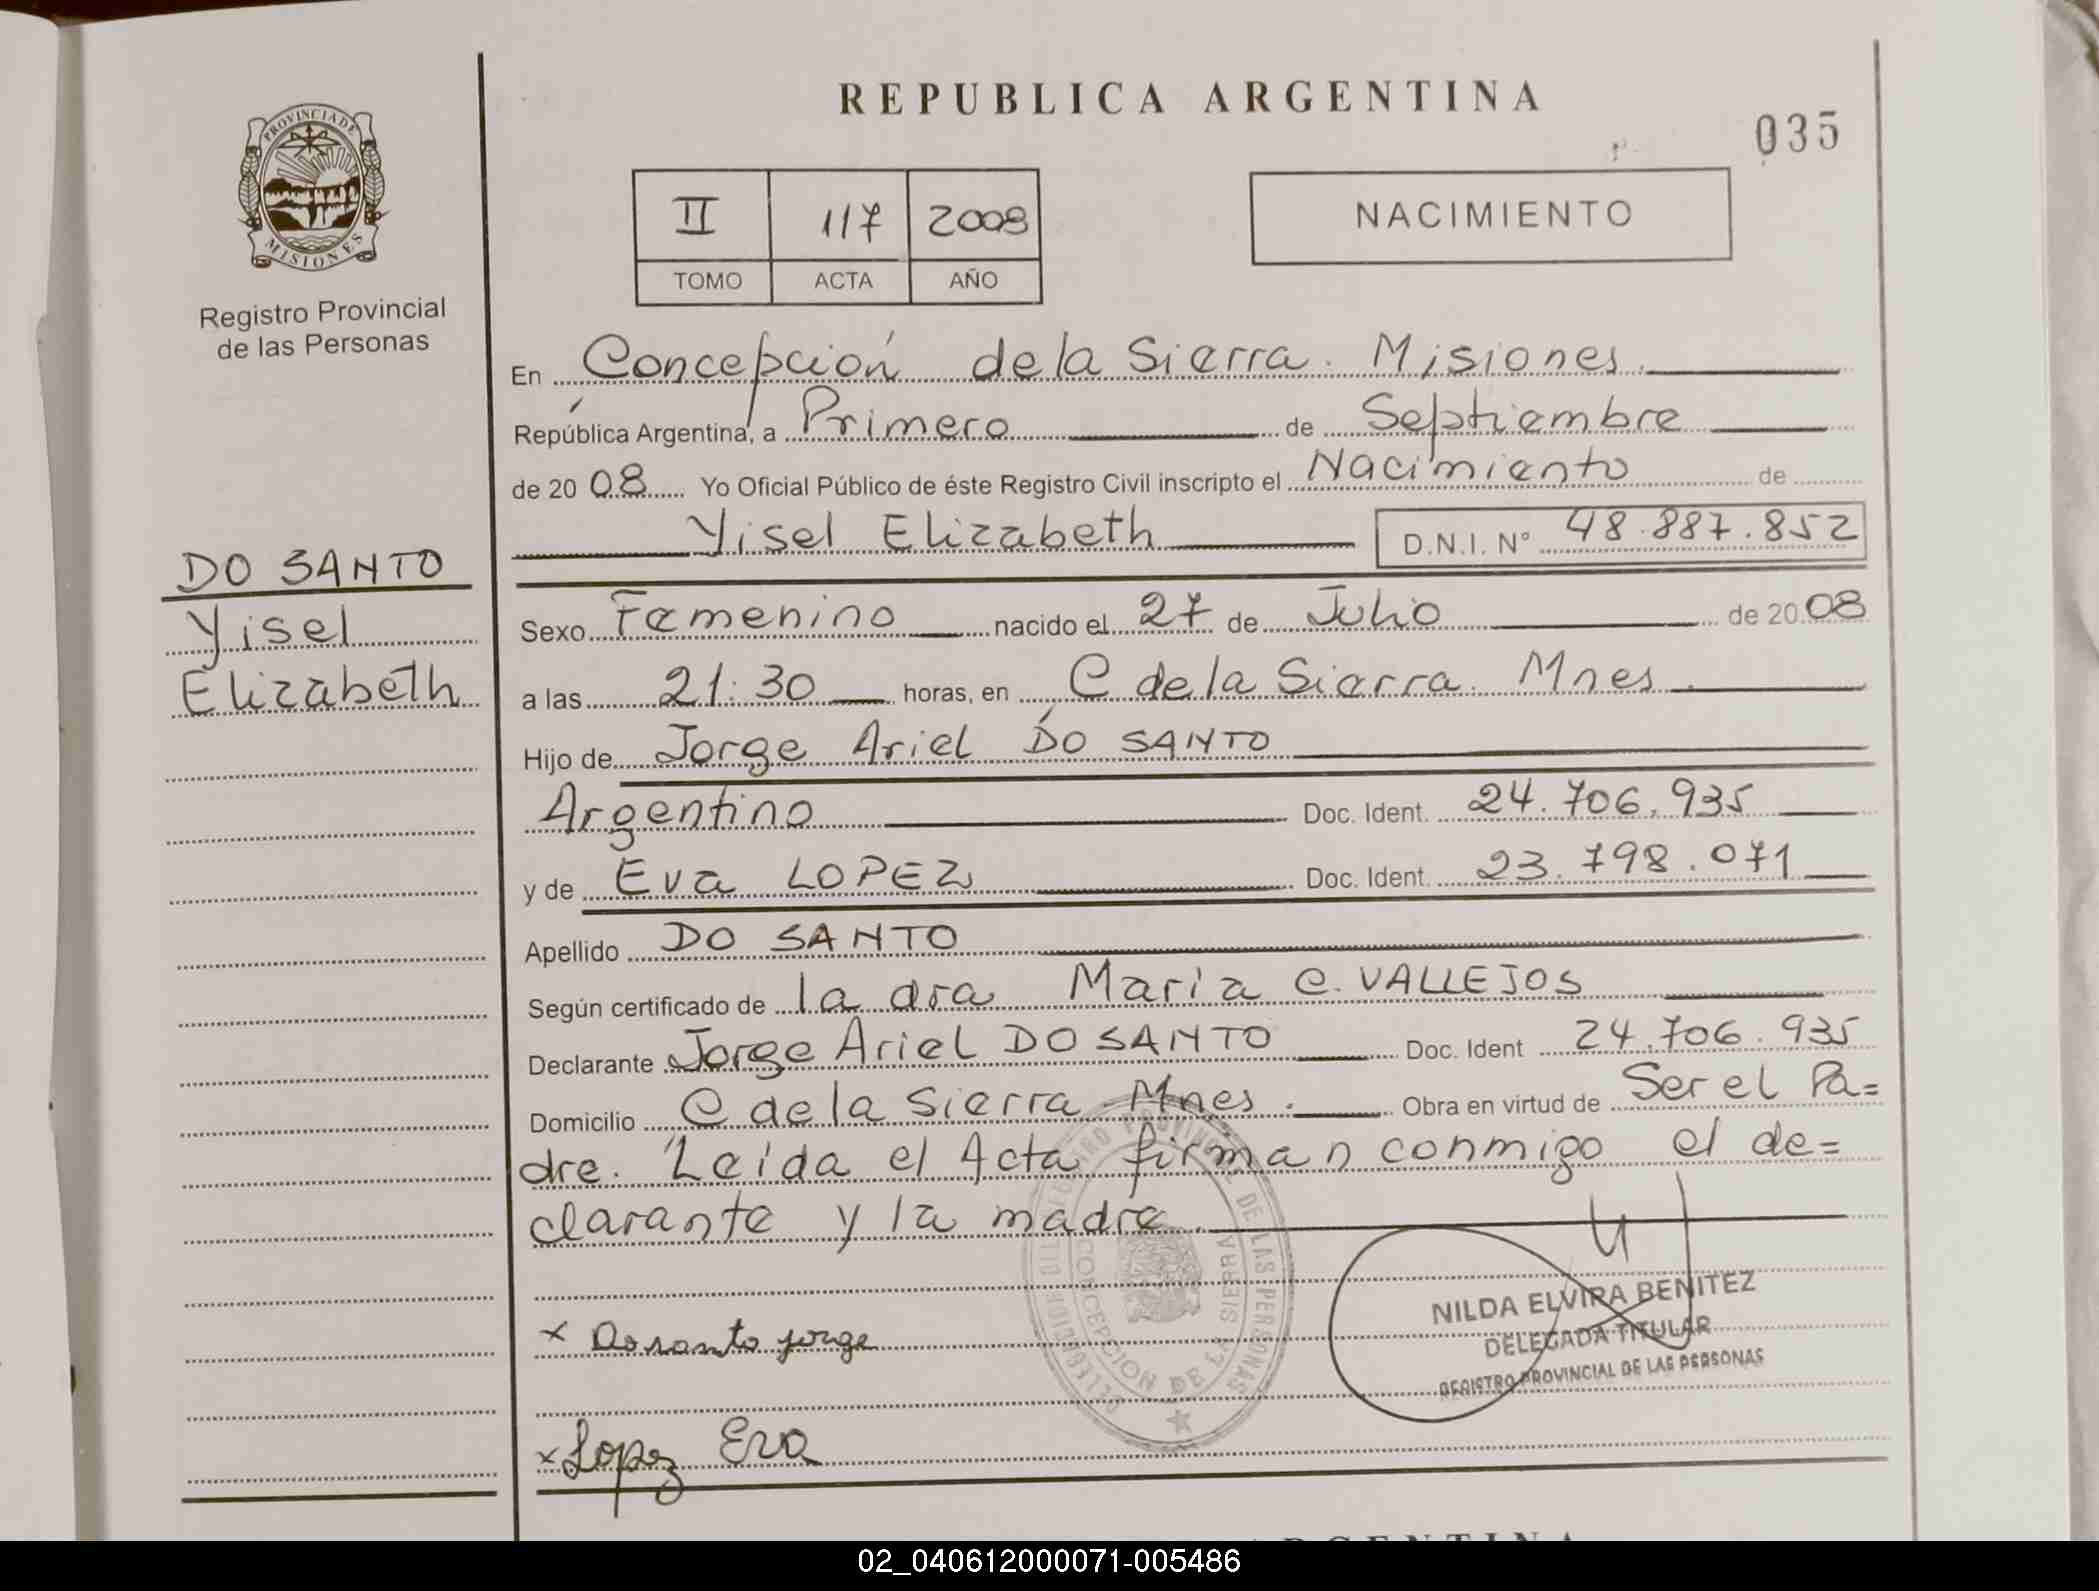 REPUBLICA ARGENTINA
035
PROVINCIA DE
MISIONES
Registro Provincial
de las Personas
II 117 2008
TOMO ACTA AÑO
NACIMIENTO
En Concepción de la Sierra. Misiones.
República Argentina, a Primero de Septiembre
de 20 08 Yo Oficial Público de éste Registro Civil inscripto el Nacimiento de
Yisel Elizabeth D.N.I. N° 48.887.852
DO SANTO
Yisel
Elizabeth
Sexo Femenino nacido el 27 de Julio de 20 08
a las 21:30 horas, en C de la Sierra. Mnes.
Hijo de Jorge Ariel DO SANTO
Argentino Doc. Ident. 24.706.935
y de Eva LOPEZ Doc. Ident. 23.798.071
Apellido DO SANTO
Según certificado de la dra Maria C. VALLEJOS
Declarante Jorge Ariel DO SANTO Doc. Ident 24.706.935
Domicilio C de la Sierra Mnes. Obra en virtud de Ser el Pa=
dre. Leída el Acta firman conmigo el de=
clarante y la madre.
REGISTRO PROVINCIAL DE LAS PERSONAS
CONCEPCION DE LA SIERRA
NILDA ELVIRA BENITEZ
DELEGADA TITULAR
REGISTRO PROVINCIAL DE LAS PERSONAS
x Do santo jorge
x Lopez Eva
02_040612000071-005486